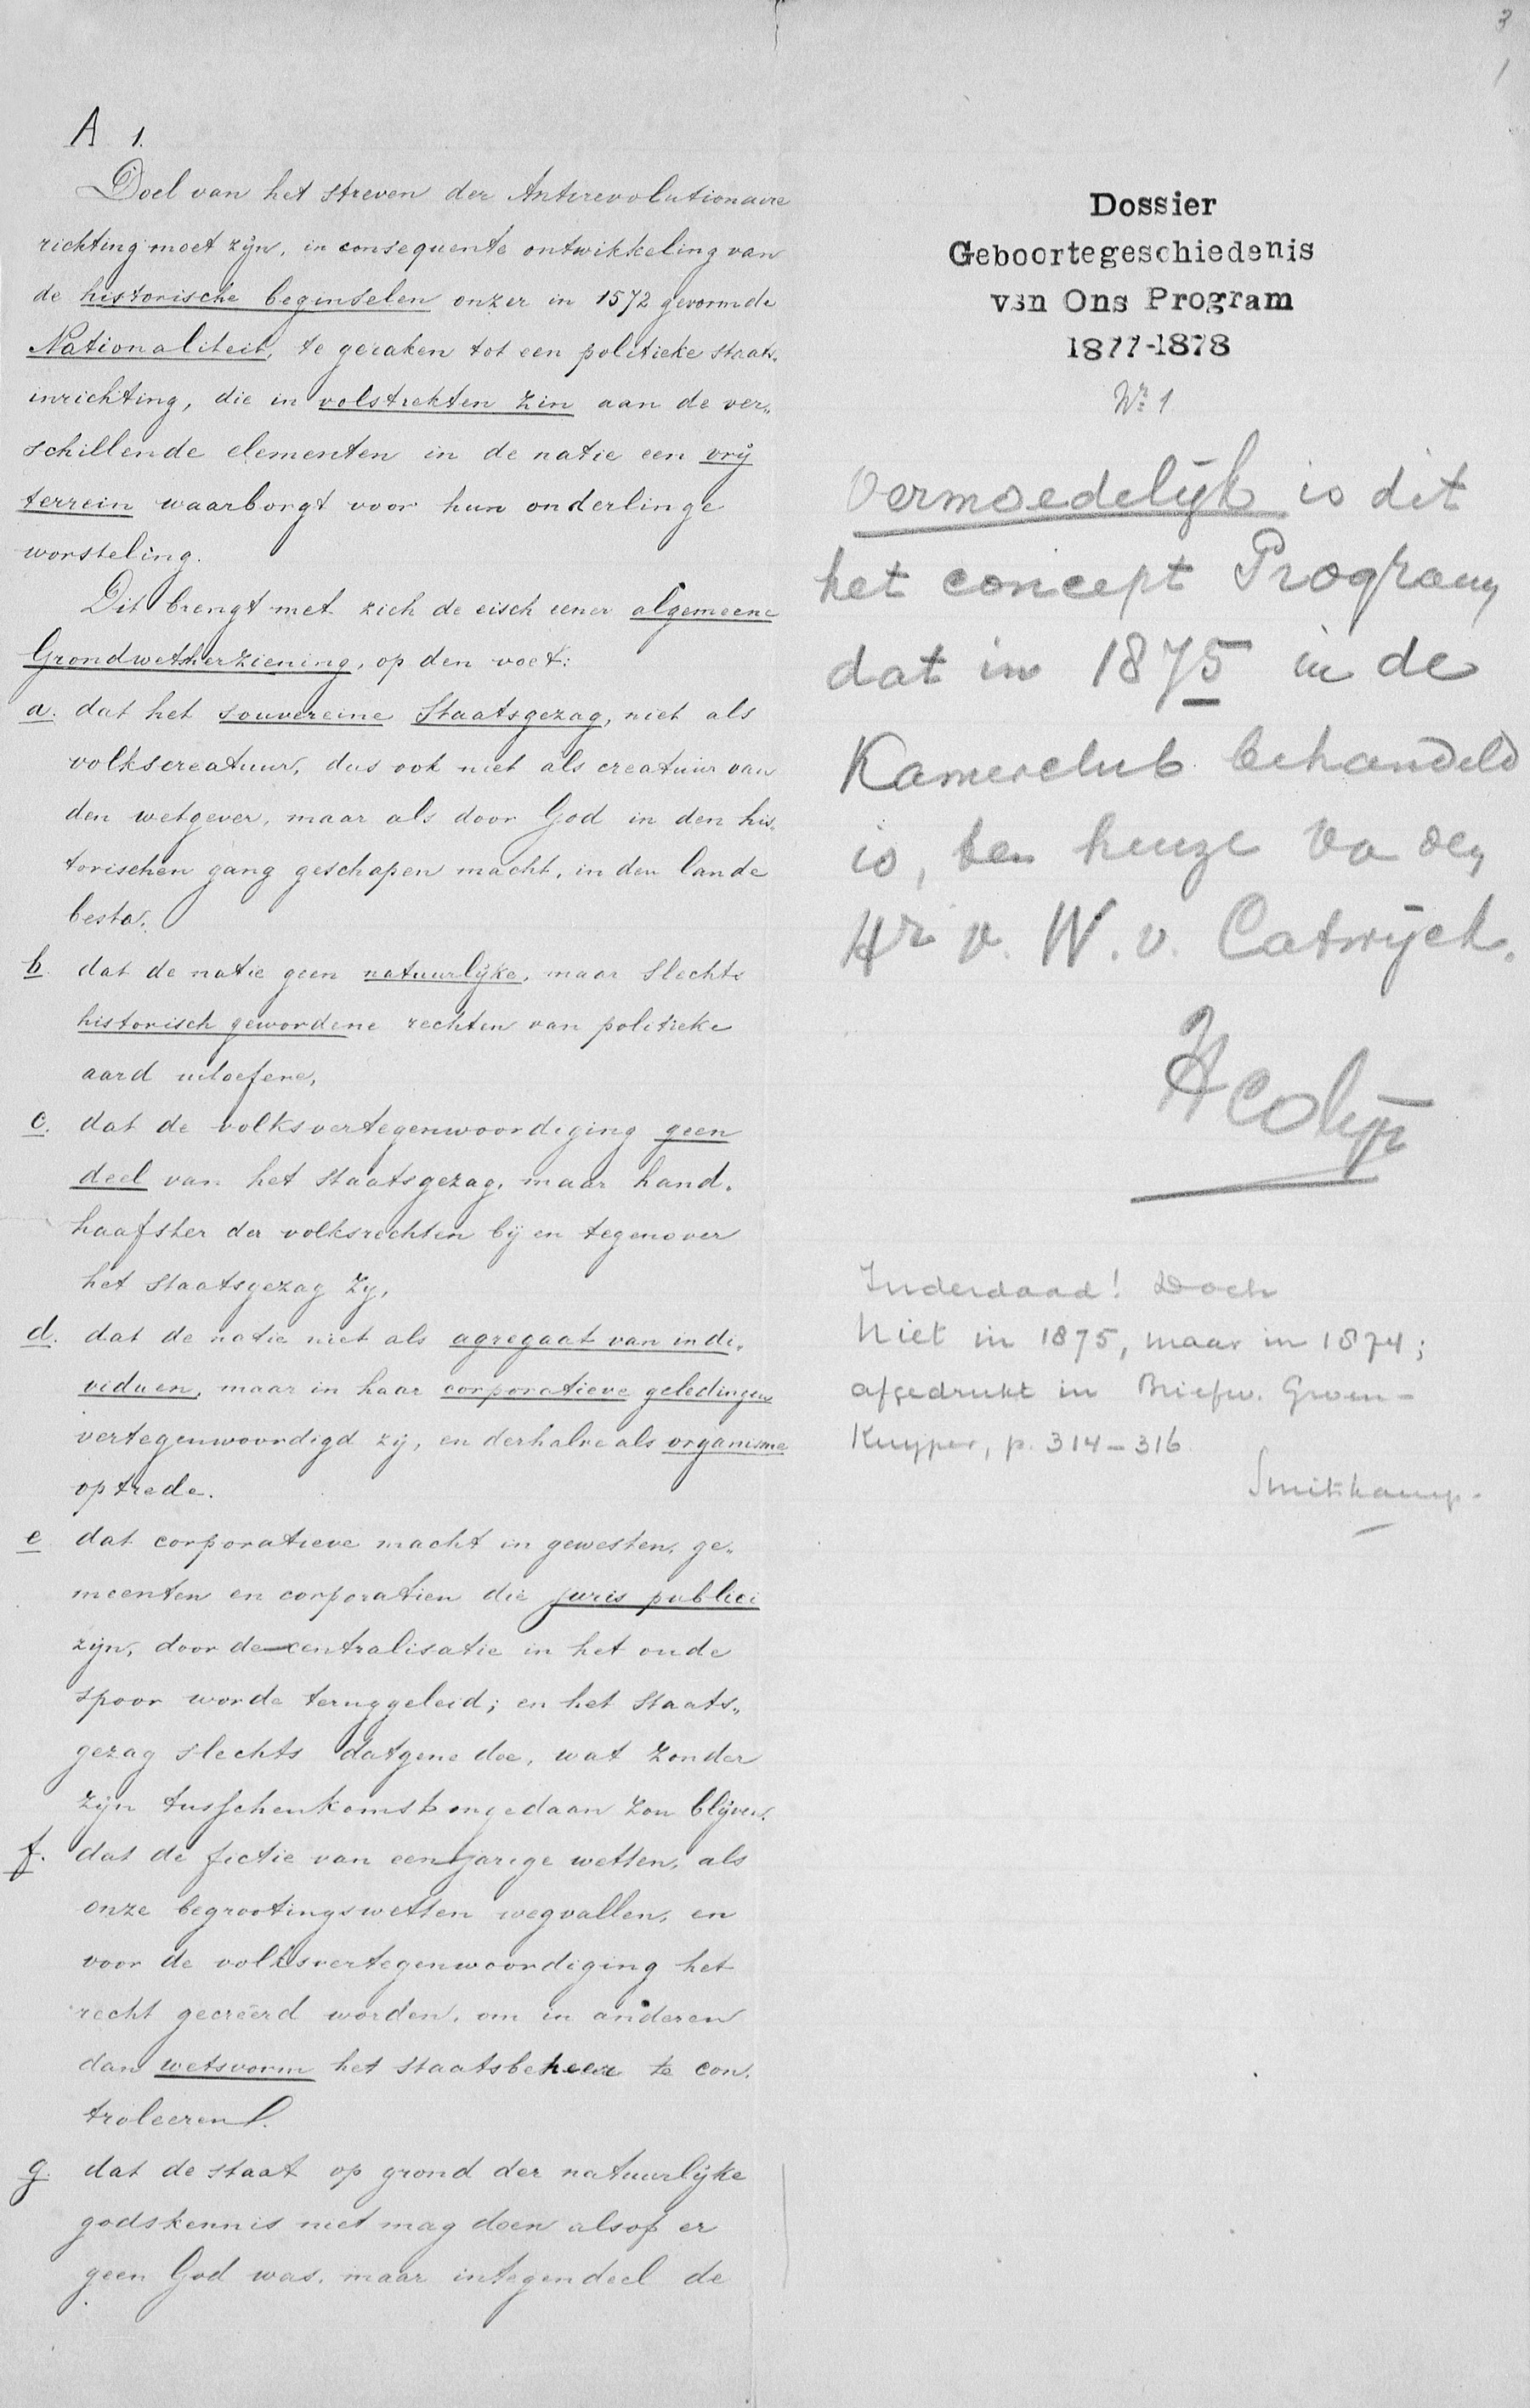 A 1.
Doel van het streven der Antirevolutionaire
richting moet zijn, in consequente ontwikkeling van
de historische beginselen onzer in 1572 gevormde
Nationaliteit, te geraken tot een politieke staats„
inrichting, die in volstrekten zin aan de ver„
schillende elementen in de natie een vrij
terrein waarborgt voor hun onderlinge
worsteling.
Dit brengt met zich de eisch eener algemeene
Grondwetsherziening, op den voet:
a. dat het souvereine Staatsgezag, niet als
volkscreatuur, dus ook niet als creatuur van
den wetgever, maar als door God in den his„
torischen gang geschapen macht, in den lande
besta.
b. dat de natie geen natuurlijke, maar slechts
historisch gewordene rechten van politieke
aard uitoefene,
c. dat de volksvertegenwoordiging geen
deel van het staatsgezag, maar hand„
haafster der volksrechten bij en tegenover
het staatsgezag zij,
d. dat de natie niet als agregaat van indi„
viduen, maar in haar corporatieve geledingen
vertegenwoordigd zij, en derhalve als organisme
optrede.
e dat corporatieve macht in gewesten, ge„
meenten en corporatien die juris publici
zijn, door de-centralisatie in het oude
spoor worde teruggeleid; en het staats„
gezag slechts datgene doe, wat zonder
zijn tusschenkomst ongedaan zou blijven.
f. dat de fictie van eenjarige wetten, als
onze begrootingswetten wegvallen, en
voor de volksvertegenwoordiging het
recht gecreëerd worden, om in anderen
dan wetsvorm het staatsbeheer te con„
troleeren.
g. dat de staat op grond der natuurlijke
godskennis niet mag doen alsof er
geen God was, maar integendeel de
3
1
Dossier
Geboortegeschiedenis
van Ons Program
1877-1878
No 1
Vermoedelijk is dit
het concept Program
dat in 1875 in de
Kamerclub behandeld
is, ten huize va den
Hr v. W. v. Catwijck.
H Colijn
Inderdaad! Doch
niet in 1875, maar in 1874;
afgedrukt in Briefw. Groen-
Kuyper, p. 314-316
Smitskamp.